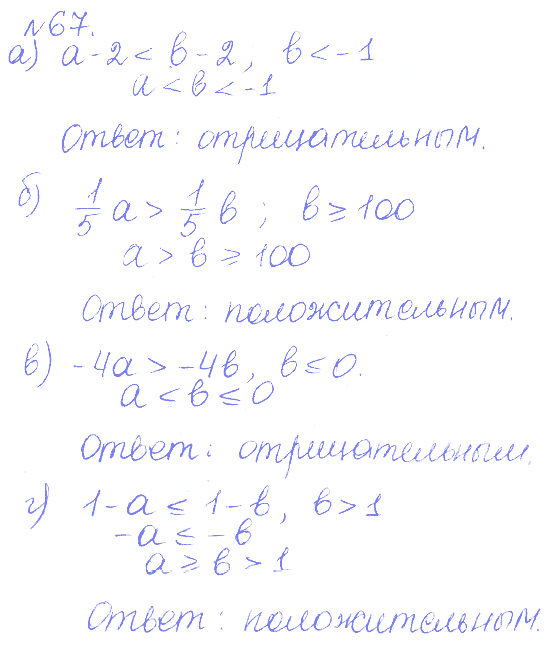 №67.
а) a-2 < в-2, в < -1
a < в < -1
Ответ: отрицательным.
б) 1/5 a > 1/5 в ; в ≥ 100
a > в ≥ 100
Ответ: положительным.
в) -4a > -4в, в ≤ 0.
a < в ≤ 0
Ответ: отрицательным.
г) 1-a ≤ 1-в, в > 1
-a ≤ -в
a ≥ в > 1
Ответ: положительным.